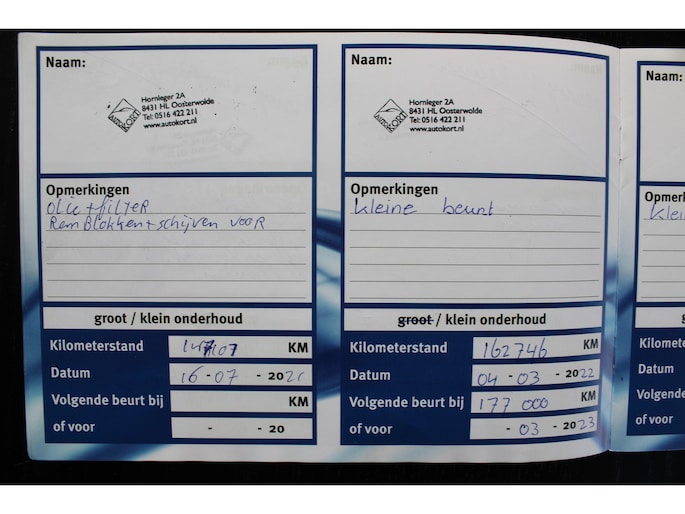 Naam:
Hornleger 2A
8431 HL Oosterwolde
Tel: 0516 422 211
www.autokort.nl
AUTOKORT
Opmerkingen
olie + filter
Remblokken + schijven voor
groot / klein onderhoud
Kilometerstand KM
Datum 16 - 07 - 2021
Volgende beurt bij KM
of voor - - 20
Naam:
Hornleger 2A
8431 HL Oosterwolde
Tel: 0516 422 211
www.autokort.nl
AUTOKORT
Opmerkingen
kleine beurt
groot / klein onderhoud
Kilometerstand 162746 KM
Datum 04 - 03 - 2022
Volgende beurt bij 177 000 KM
of voor - 03 - 2023
Naam:
Opmerk
klei
g
Kilomete
Datum
Volgende
of voor